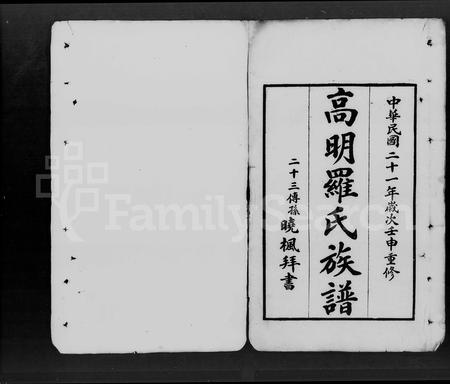 中華民國二十一年歲次壬申重修
高明羅氏族譜
二十三傳孫曉楓拜書
FamilySearch